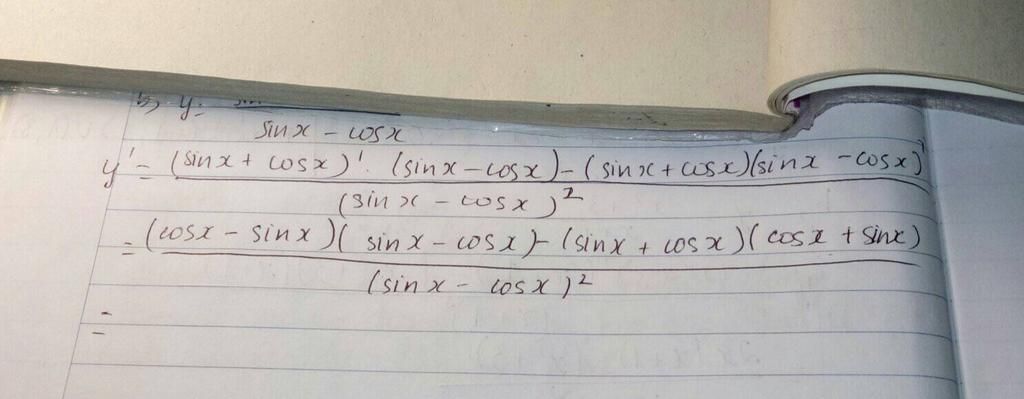 b, y = sin
sinx - cosx
y' = (sinx + cosx)'. (sinx - cosx) - (sinx + cosx)(sinx - cosx)'
(sinx - cosx)²
= (cosx - sinx)(sinx - cosx) - (sinx + cosx)(cosx + sinx)
(sinx - cosx)²
=